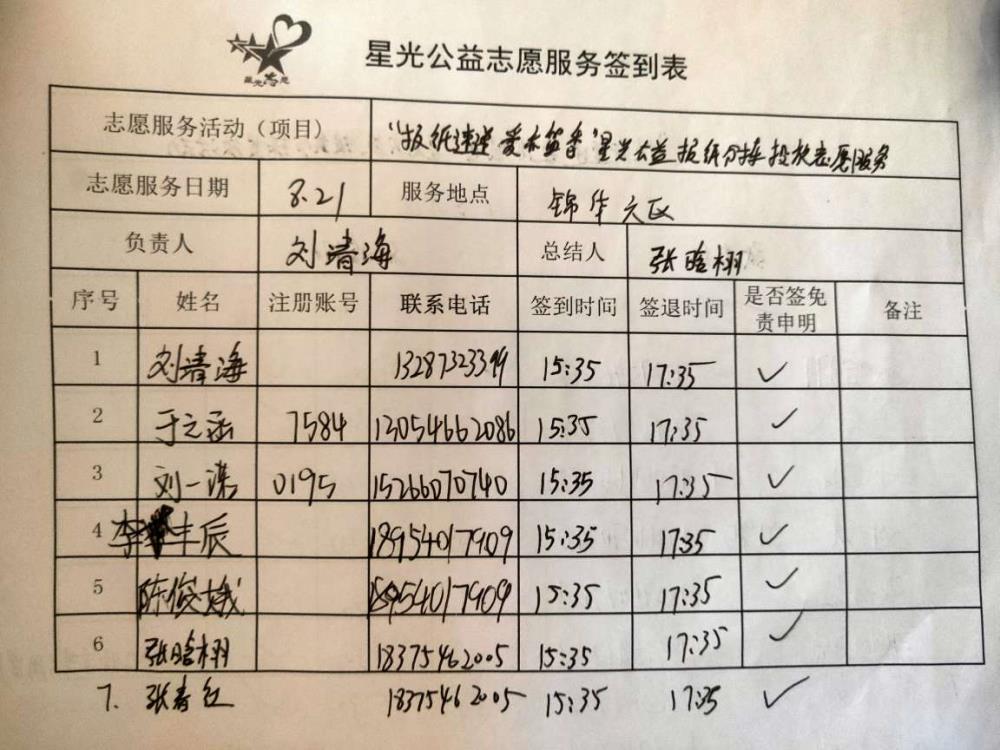 星光志愿
星光公益志愿服务签到表
志愿服务活动（项目） “报纸速递 爱亦飘香”星光公益报纸分拣投放志愿服务
志愿服务日期 8.21 服务地点 锦华六区
负责人 刘清海 总结人 张晗栩
序号 姓名 注册账号 联系电话 签到时间 签退时间 是否签免责申明 备注
1 刘清海 132873233 15:35 17:35 ✓
2 于之涵 7584 13054662086 15:35 17:35 ✓
3 刘一 0195 15266070740 15:35 17:35 ✓
4 李丰辰 18954017909 15:35 17:35 ✓
5 陈俊娥 18954017909 15:35 17:35 ✓
6 张晗栩 18375462005 15:35 17:35 ✓
7. 张春红 18375462005 15:35 17:35 ✓